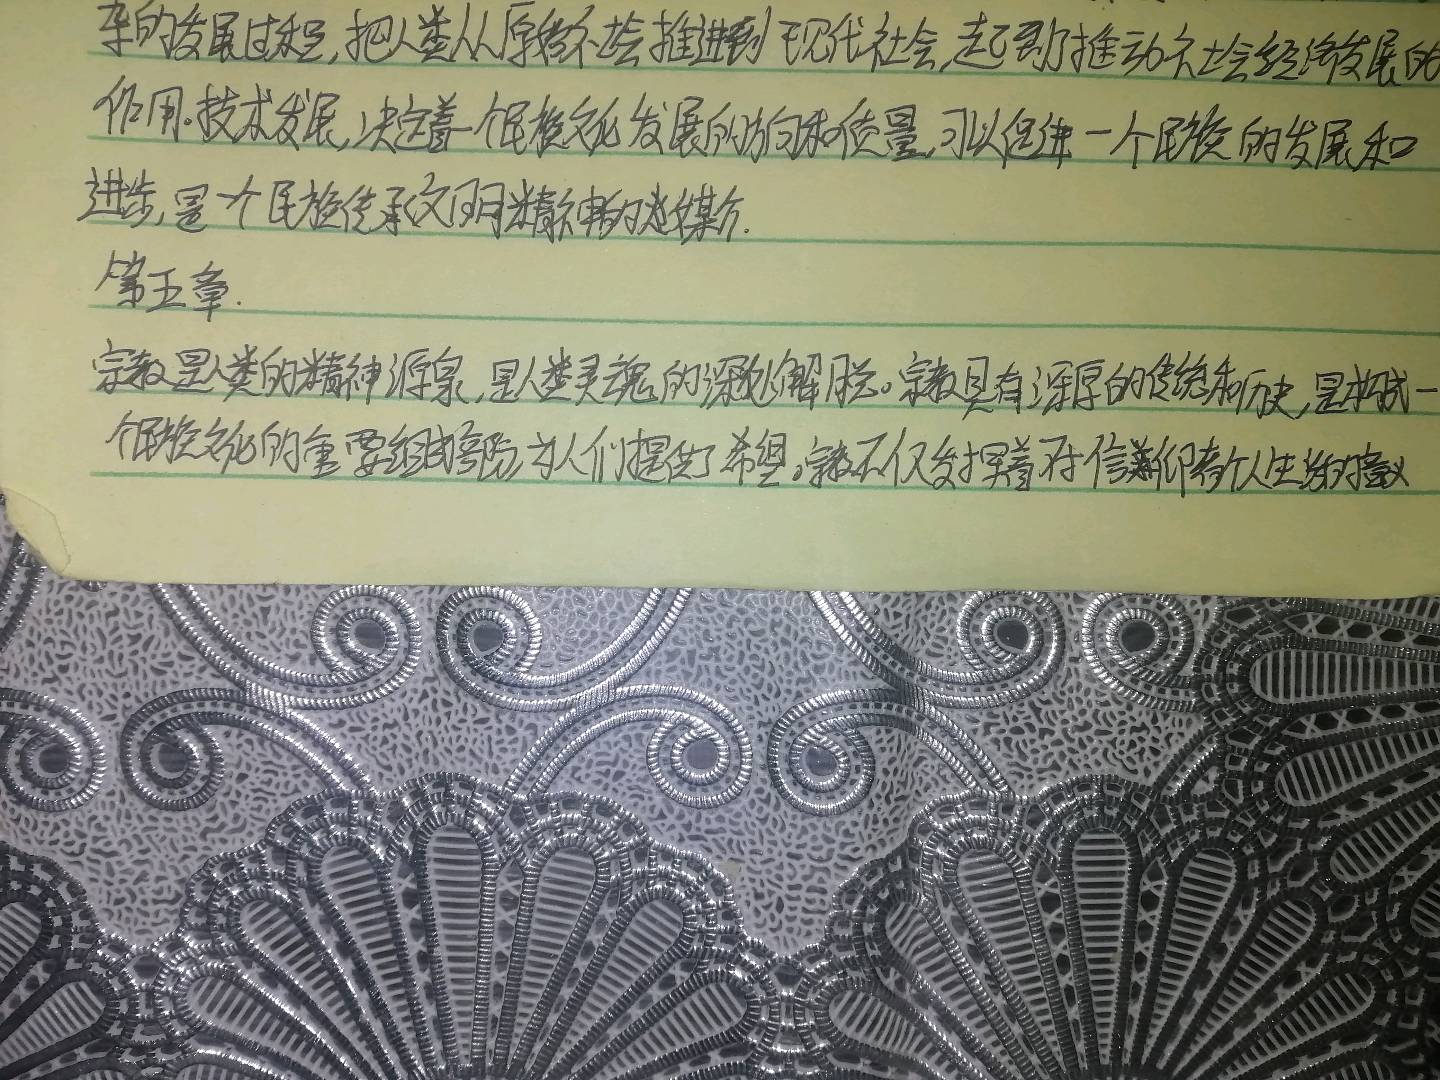 杂的发展过程,把人类从原始社会推进到了现代社会,起到了推动社会经济发展的
作用。技术发展,决定着一个民族文化发展的方向和质量,可以促进一个民族的发展和
进步,是一个民族传承文明精神的媒介.
第五章.
宗教是人类的精神源泉,是人类灵魂的深刻解脱。宗教具有深厚的传统和历史,是构成一
个民族文化的重要组成部分,为人们提供了希望。宗教不仅发挥着对信仰者个人生活的意义